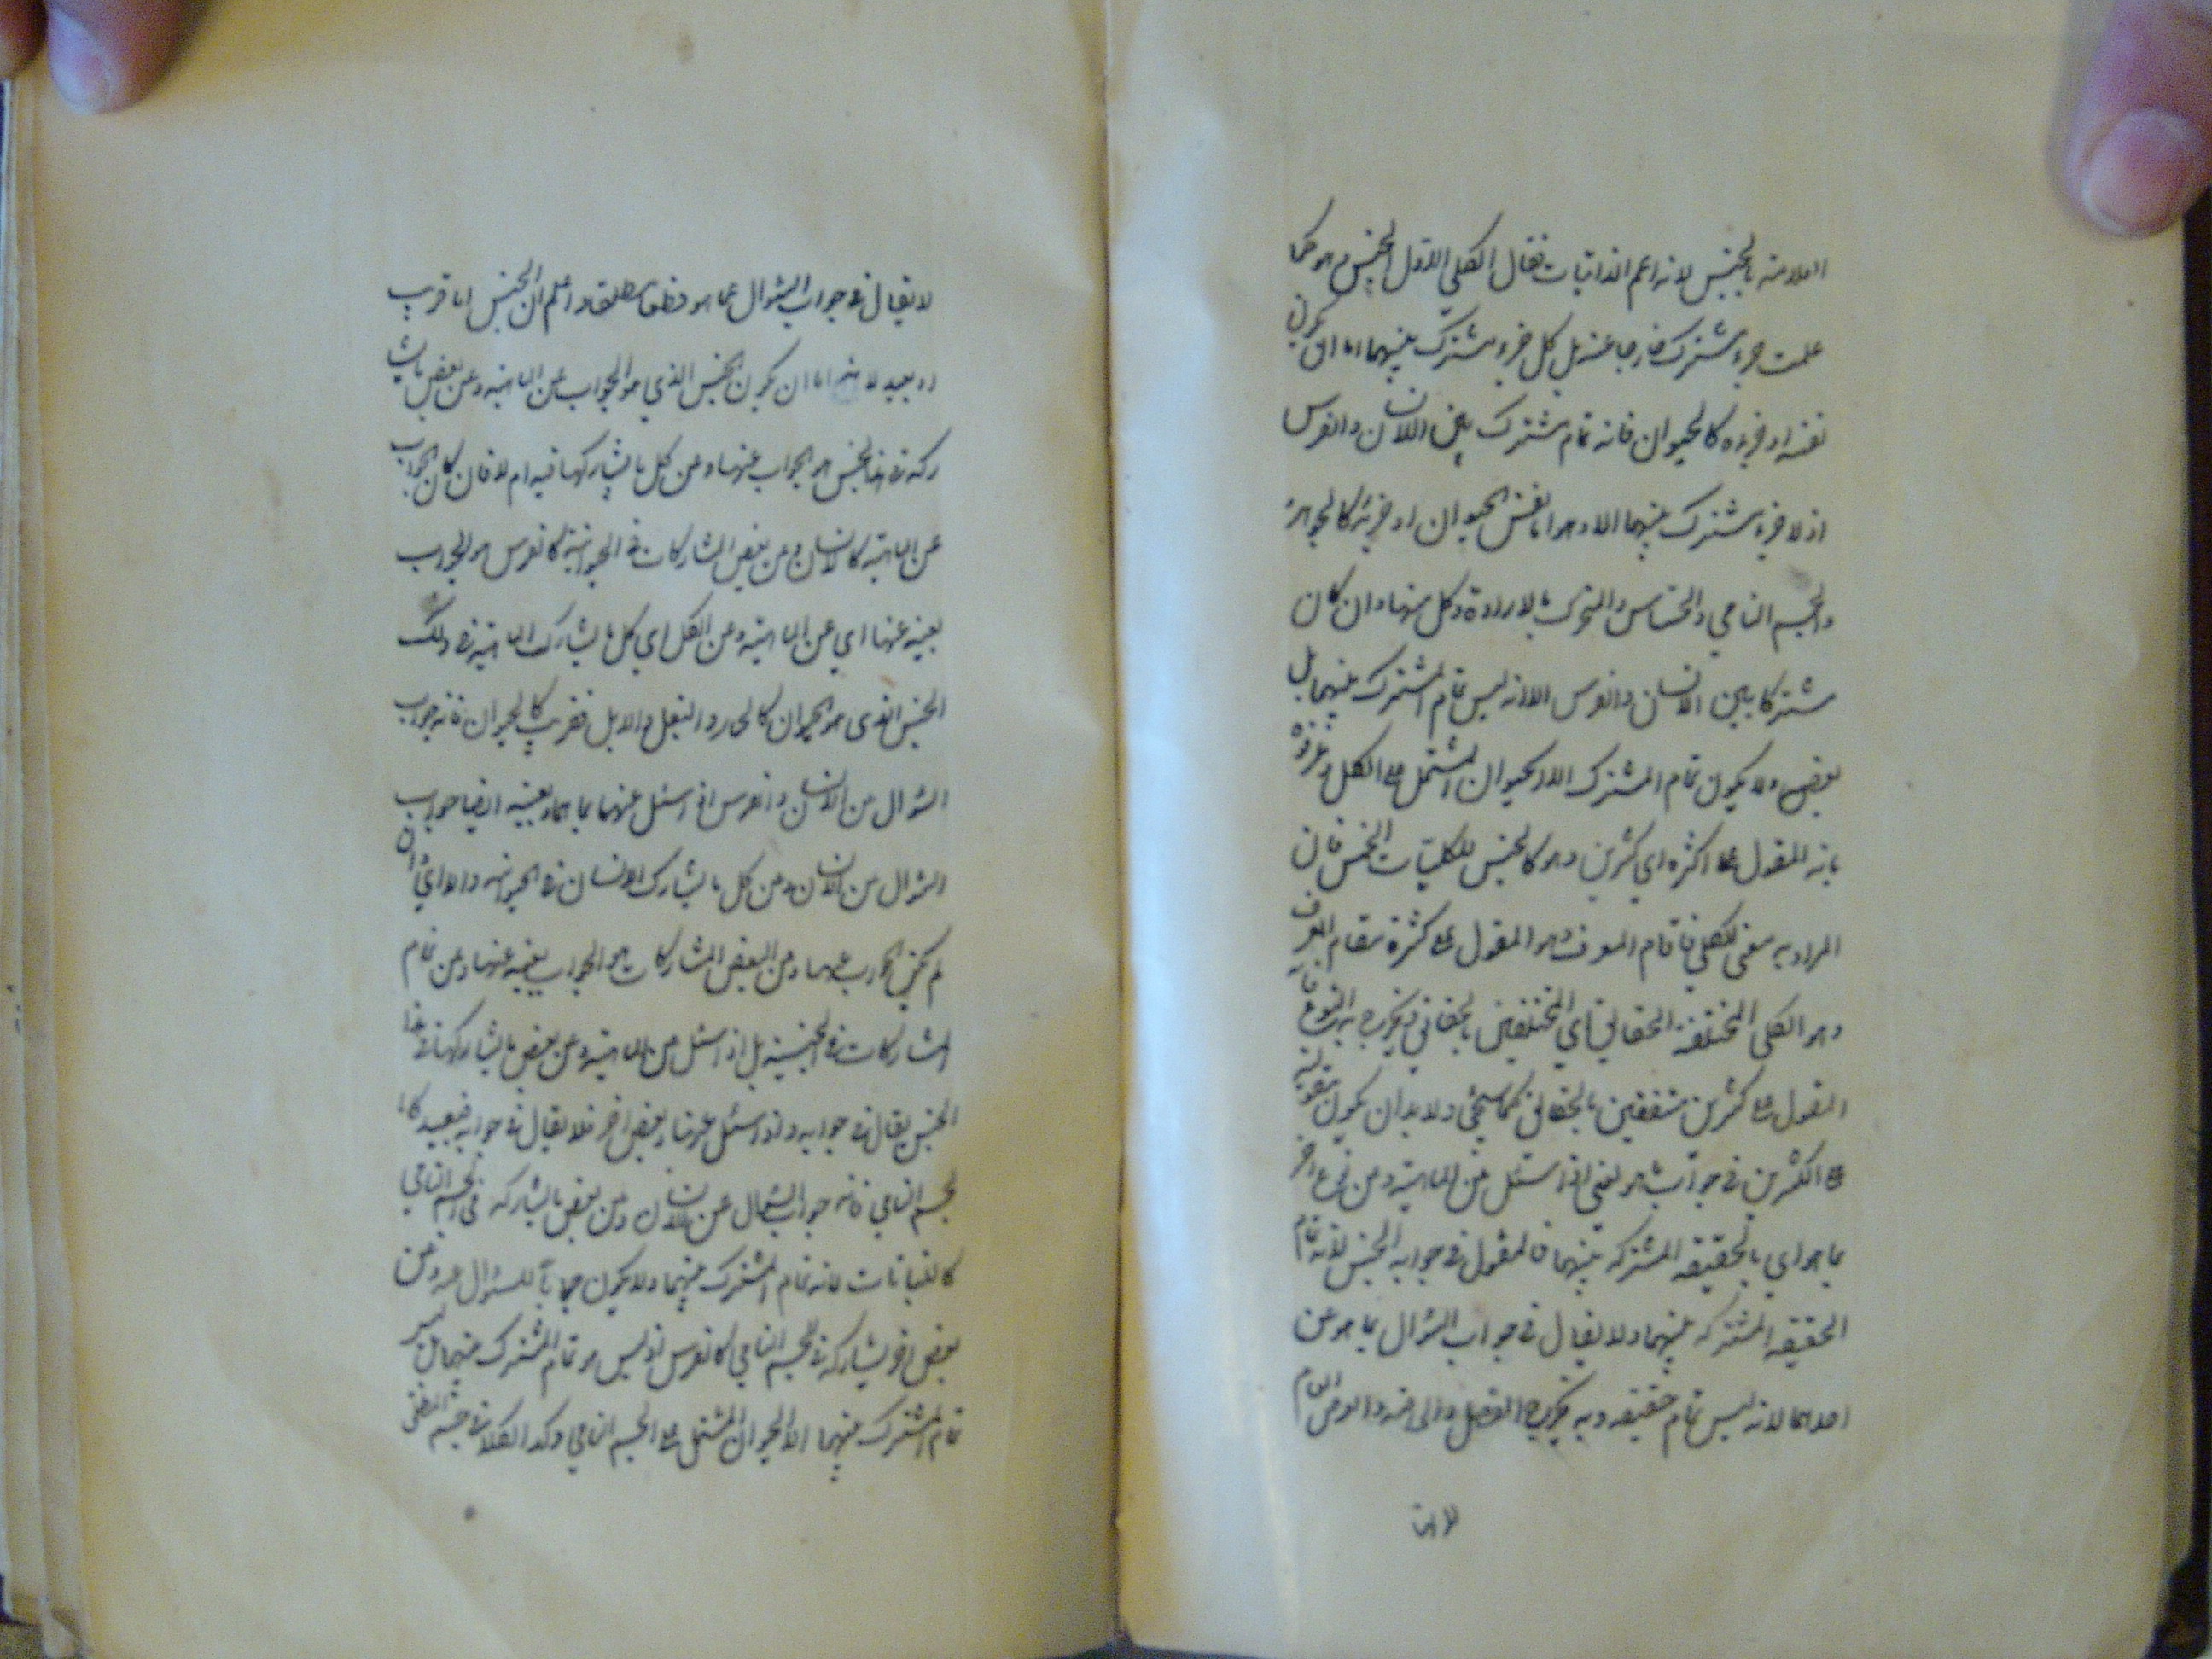 العلامة بالجنس لانه اعم الذاتيات فقال الكلي الاول الجنس وهو كما
علمت جزء مشترك خارجا عنه بل كل جزء مشترك بينهما اما ان يكون
نفسه او جزءه كالحيوان فانه تمام مشترك بين الانسان والفرس
اذ لا جزء مشترك بينهما الا وهو اما نفس الحيوان او جزئه كالجوهر
والجسم النامي والحساس والمتحرك بالارادة وكل منها وان كان
مشتركا بين الانسان والفرس الا انه ليس تمام المشترك بينهما بل
بعض ولا يكون تمام المشترك الا الحيوان المشتمل على الكل
بانه المقول على كثرة اي كثيرين وهو كالجنس للكليات الخمس فان
المراد به معنى الكلي فاقام المعرف وهو المقول على كثرة مقام المعرف
وهو الكلي المختلفة الحقائق اي المختلفين بالحقائق فيخرج به النوع فانه
المقول على كثيرين متفقين بالحقائق كما سيجئ ولا بد ان يكون مقوليته
على الكثيرين في جواب ما هو يعني اذا سئل عن الماهية وعن نوع اخر
بما هو اي بالحقيقة المشتركة بينهما فالمقول في جوابه الجنس لانه تمام
الحقيقة المشتركة بينهما ولا يقال في جواب السؤال بما هو عن
احدهما لانه ليس تمام حقيقته وبه يخرج الفصل والخاصة والعرض العام
لانها
لا يقال في جواب السؤال عما هو مطلقا واعلم ان الجنس اما قريب
او بعيد لانه اما ان يكون الجنس الذي هو الجواب عن الماهية وعن بعض ما يشا
ركه في هذا الجنس هو الجواب عنها وعن كل ما يشاركها فيه ام لا فان كان الجواب
عن الماهية كالانسان وعن بعض المشاركات في الحيوانية كالفرس هو الجواب
بعينه عنها اي عن الماهية وعن الكل اي كل ما يشارك الماهية في ذلك
الجنس الذي هو الحيوان كالحمار والبغل والابل فقريب كالحيوان فانه جواب
السؤال عن الانسان والفرس اذ اسئل عنهما بما هما وبعينه ايضا جواب
السؤال عن الانسان وعن كل ما يشارك الانسان في الحيوانية والا اي ان
لم يكن الجواب عنها وعن البعض المشاركات هو الجواب بعينه عنها وعن تمام
المشاركات في الجنسية بل اذا سئل عن الماهية وعن بعض ما يشاركها في هذا
الجنس يقال في جوابه واذا سئل عنها وبعض اخر فلا يقال في جوابه فبعيد كا
لجسم النامي فانه جواب السؤال عن الانسان وعن بعض ما يشاركه في الجسم النامي
كالنباتات لانه تمام المشترك بينهما ولا يكون جوابا للسؤال عنه وعن
بعض اخر يشاركه في الجسم النامي كالفرس اذ ليس هو تمام المشترك بينهما بل
تمام المشترك بينهما الا الحيوان المشتمل على الجسم النامي وكذا الكلام في